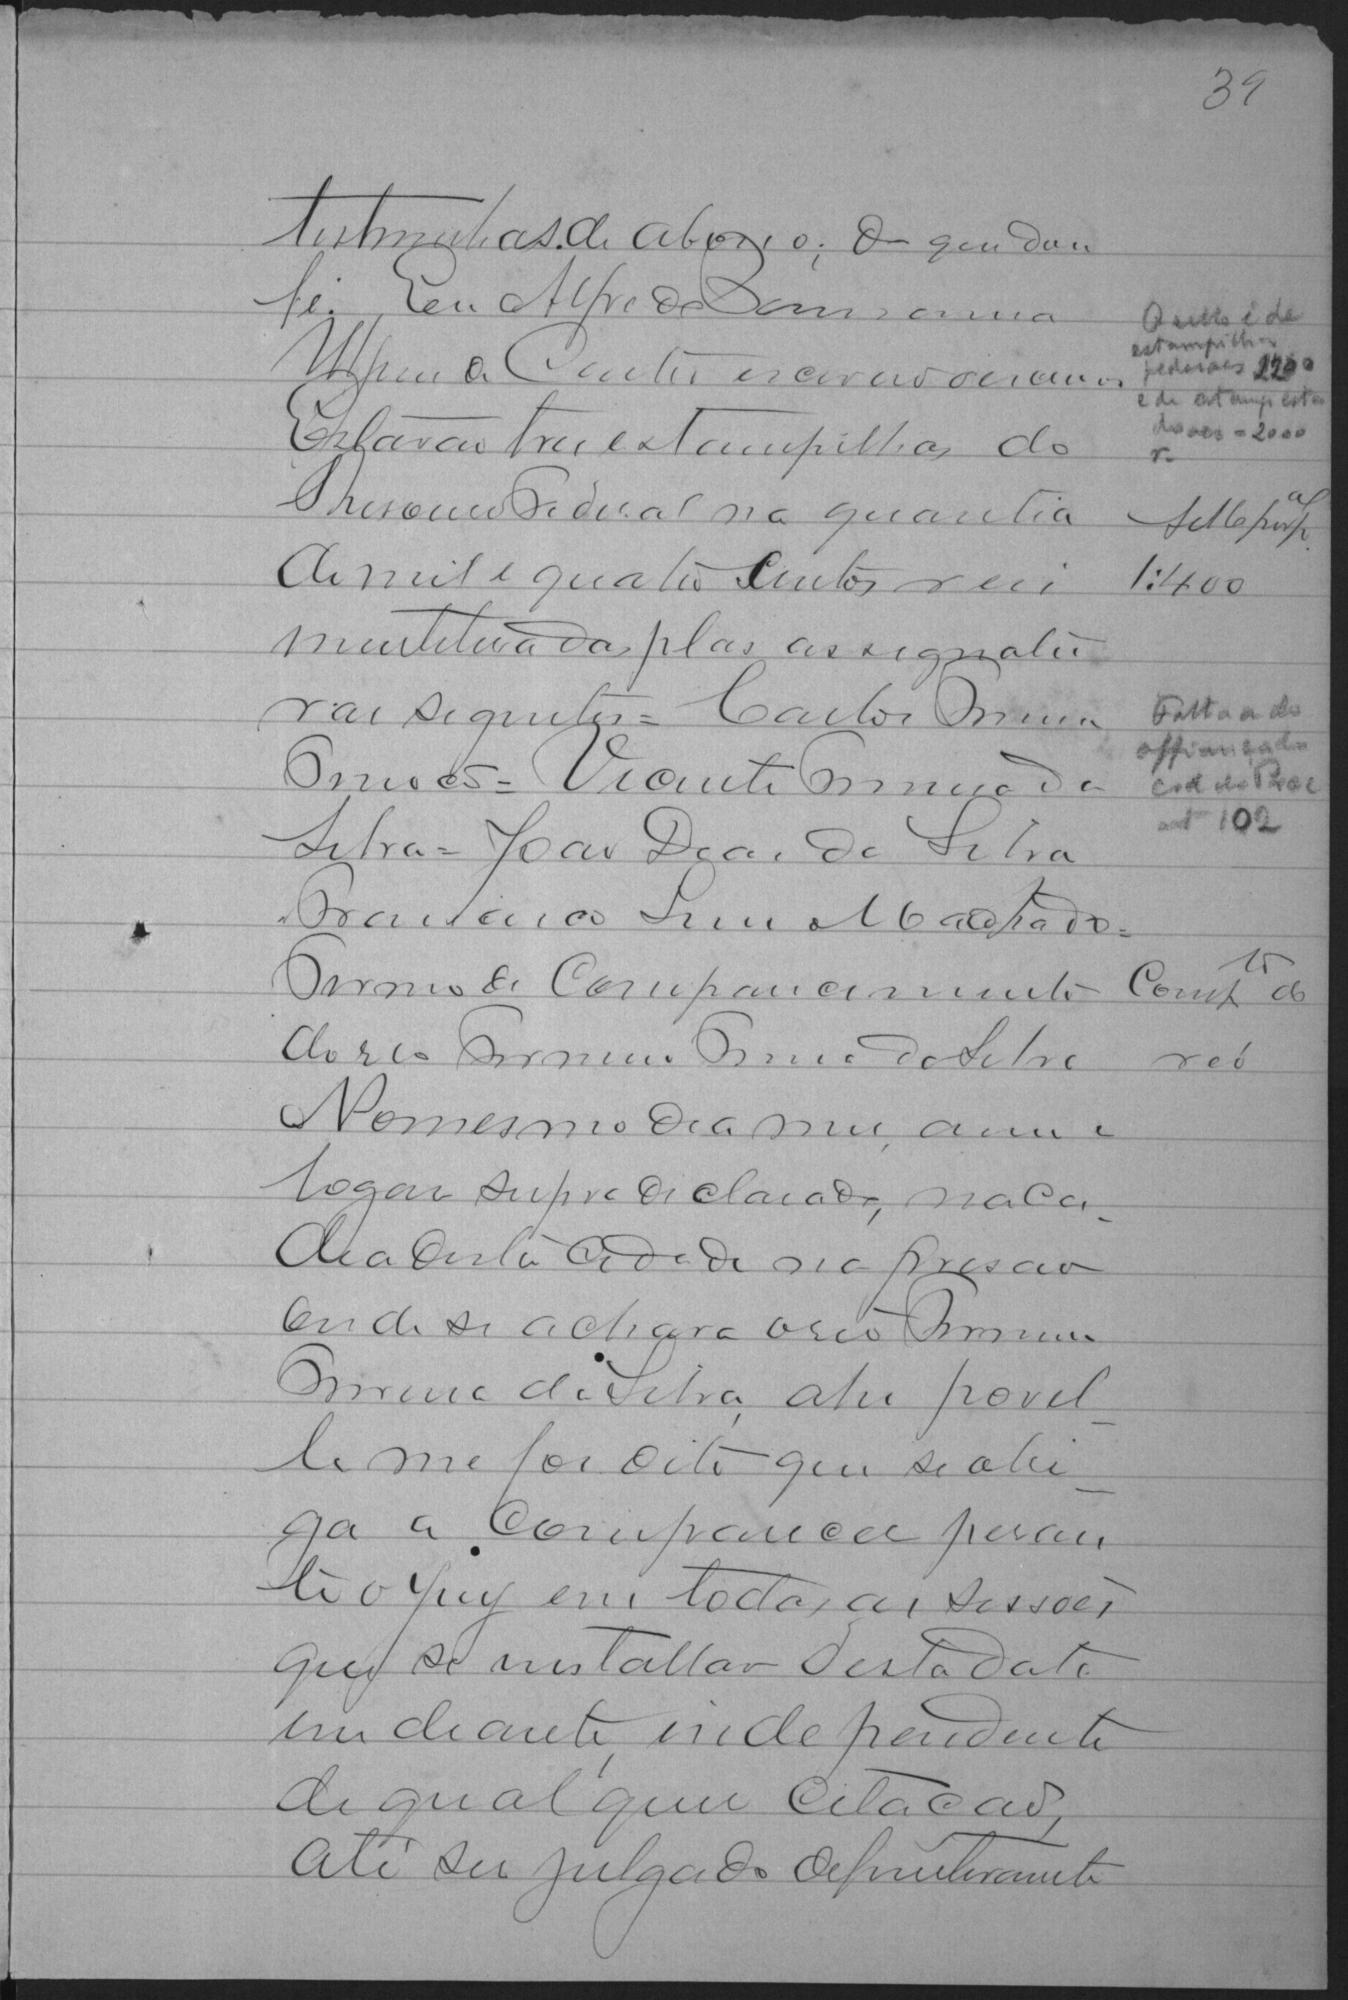 39
testemunhas de abono; do que dou
fé. Eu Alfredo
escrivão o escrevi
Estavão tres estampilhas do
Thesouro Federal na quantia
de mil e quatro centos reis
inutilisadas pelas assignatu
ras seguintes = Carlos
Vicente Firmino da
Silva = João Dias da Silva
Francisco Machado =
Termo de Comparecimento
do reo Firmino da Silva
No mesmo dia mez, anno e
logar supra declarado, na ca-
dea desta cidade na prisão
onde se achava o réo Firmino
da Silva, ahi por el-
le me foi dito que se obri-
ga a comparecer peran
te o Juiz em todas as sessões
que se installar desta data
em deante, independente
de qualquer citação,
até ser julgado definitivamente
O sello é de
estampilhas
federaes 2200
e de estamp esta
doaes = 2000
rs
Sello prop.al
1:400
Falta a do
affiançado
cod do Proc
art 102
Comp.to do
reó